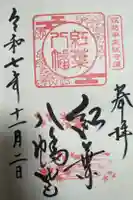 奉拝
紅葉
八幡宮
令和七年十一月二日
紅葉
八幡